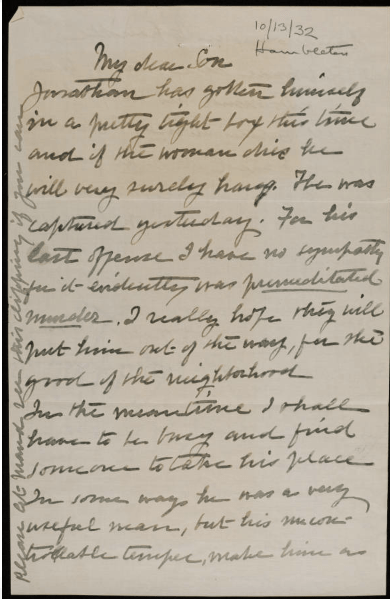 10/13/32
Hambleton
My dear Son
Jonathan has gotten himself
in a pretty tight box this time
and if the woman dies he
will very surely hang. He was
captured yesterday. For his
last offense I have no sympathy
for it evidently was premeditated
murder. I really hope they will
put him out of the way, for the
good of the neighborhood
In the meantime I shall
have to be busy and find
someone to take his place
In some ways he was a very
useful man, but his uncon-
trollable temper, make him as
this clipping if you can